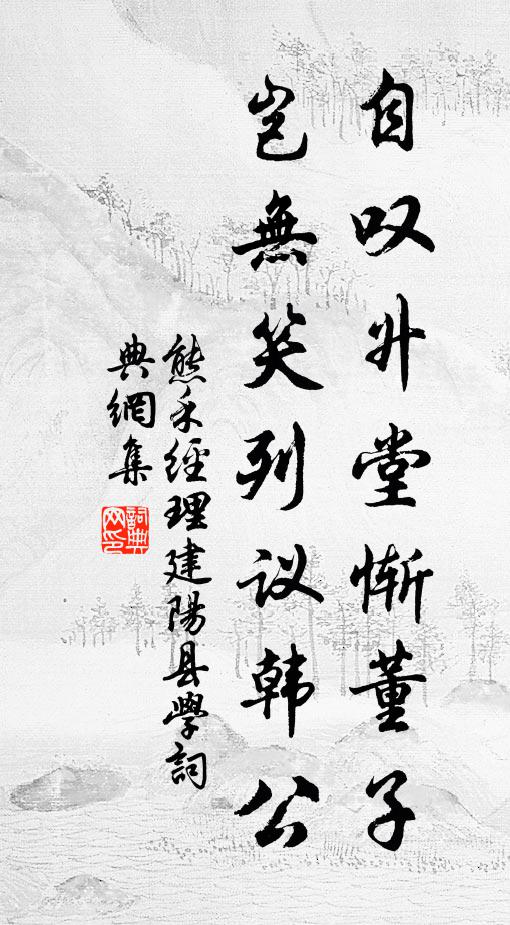 自叹升堂惭董子
岂無笑列议韩公
熊禾經理建陽县學詞
典網集
詞典
网印